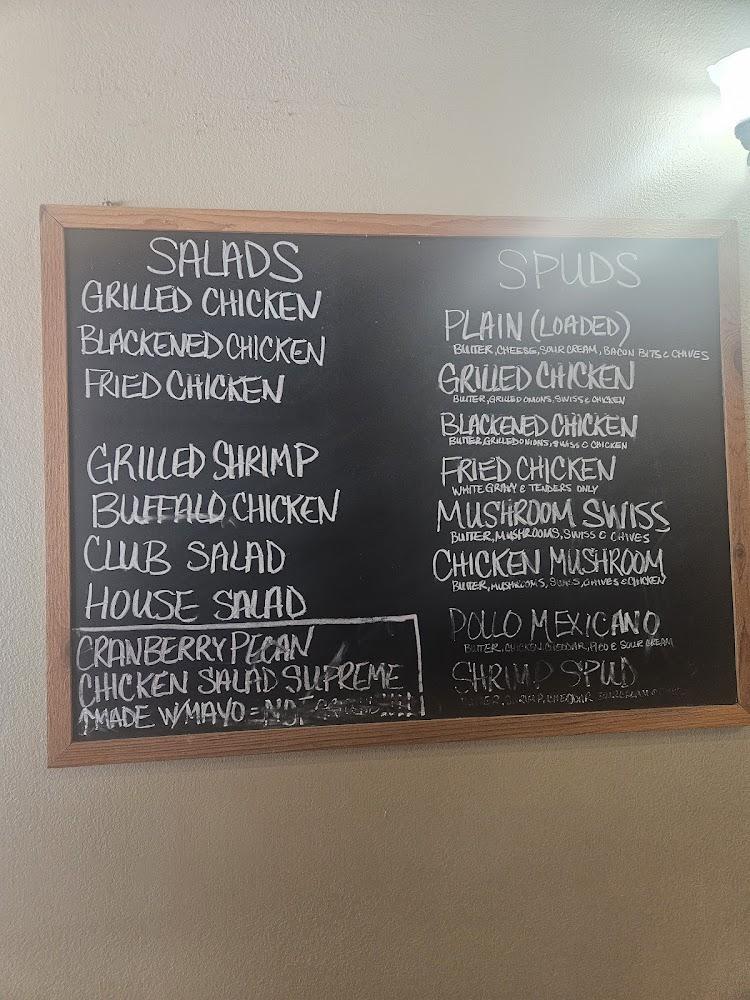 SALADS
GRILLED CHICKEN
BLACKENED CHICKEN
FRIED CHICKEN
GRILLED SHRIMP
BUFFALO CHICKEN
CLUB SALAD
HOUSE SALAD
CRANBERRY PECAN
CHICKEN SALAD SUPREME
MADE W/MAYO
SPUDS
PLAIN (LOADED)
BUTTER, CHEESE, SOUR CREAM, BACON BITS & CHIVES
GRILLED CHICKEN
BUTTER, GRILLED ONIONS, SWISS & CHICKEN
BLACKENED CHICKEN
BUTTER, GRILLED ONIONS, SWISS & CHICKEN
FRIED CHICKEN
WHITE GRAVY & TENDERS ONLY
MUSHROOM SWISS
BUTTER, MUSHROOMS, SWISS & CHIVES
CHICKEN MUSHROOM
BUTTER, MUSHROOMS, SWISS, CHIVES & CHICKEN
POLLO MEXICANO
BUTTER, CHICKEN, CHEDDAR, PICO & SOUR CREAM
SHRIMP SPUD
BUTTER, SHRIMP, CHEDDAR, SOUR CREAM &